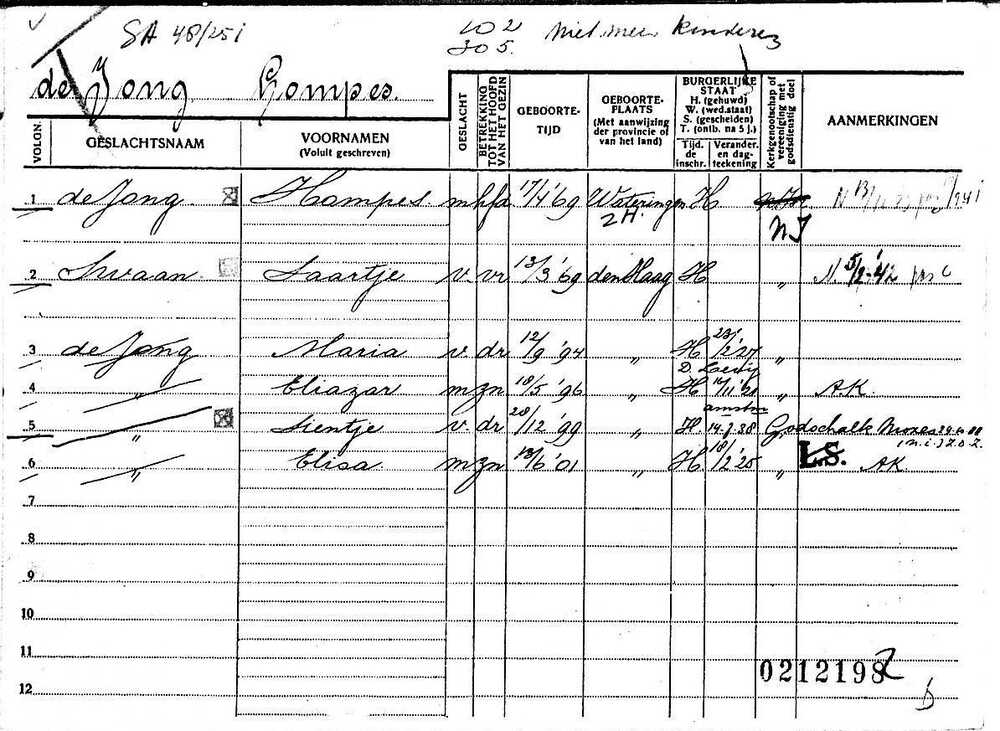 SA 48/251
102 niet meer kinderen
305.
de Jong Gompes.
VOLGN.
GESLACHTSNAAM
VOORNAMEN
(Voluit geschreven)
GESLACHT
BETREKKING TOT HET HOOFD VAN HET GEZIN
GEBOORTE-
TIJD
GEBOORTE-
PLAATS
(Met aanwijzing
der provincie of
van het land)
BURGERLIJKE
STAAT
H. (gehuwd)
W. (wed.staat)
S. (gescheiden)
T. (ontb. na 5 j.)
Tijd. de inschr.
Verander. en dag-teekening
Kerkgenootschap of vereeniging met godsdienstig doel
AANMERKINGEN
1 de Jong Hompes. m hfd 17/4 '69 Wateringen H
Z H. N I
2 Swaan Saartje v. vr 13/3 '69 den Haag H „ N. 5/2-'42
3 de Jong Maria v. dr 12/9 '94 „ H 23/2 '27 „
4 „ Eliazar m zn 18/5 '96 „ H „ A.K.
amstm
5 „ Sientje v. dr 28/12 '99 „ H. 14-9-38 „ Godschalk Mozes
(N.I.) Z.O.Z.
6 „ Elisa m zn 13/6 '01 „ H 18/2 '25 „ L.S. AK
7
8
9
10
11
12
0212198 2